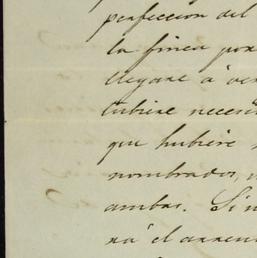 perfeccion del
la finca por
llegare á ver
tubiere neces
que hubiere
nombrados,
ambas. Si n
rá el arren